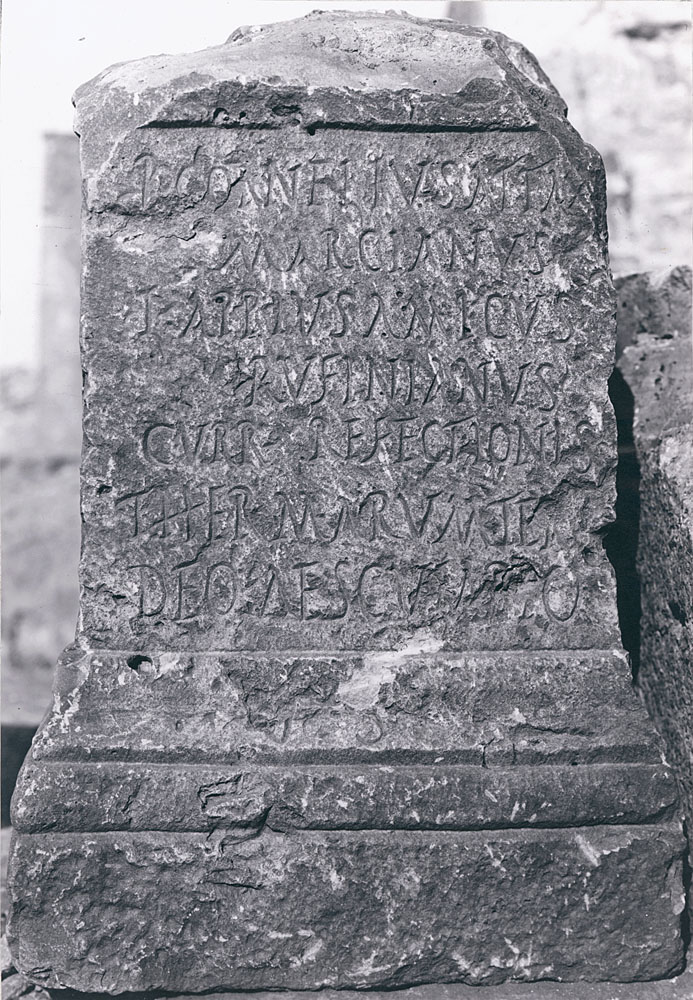 P CORNELIVS ATTA
MARCIANVS
T APPIVS AMICVS
RVFINIANVS
CVRR REFECTIONIS
THERMARVM TER
DEO AESCVLAPIO
VS